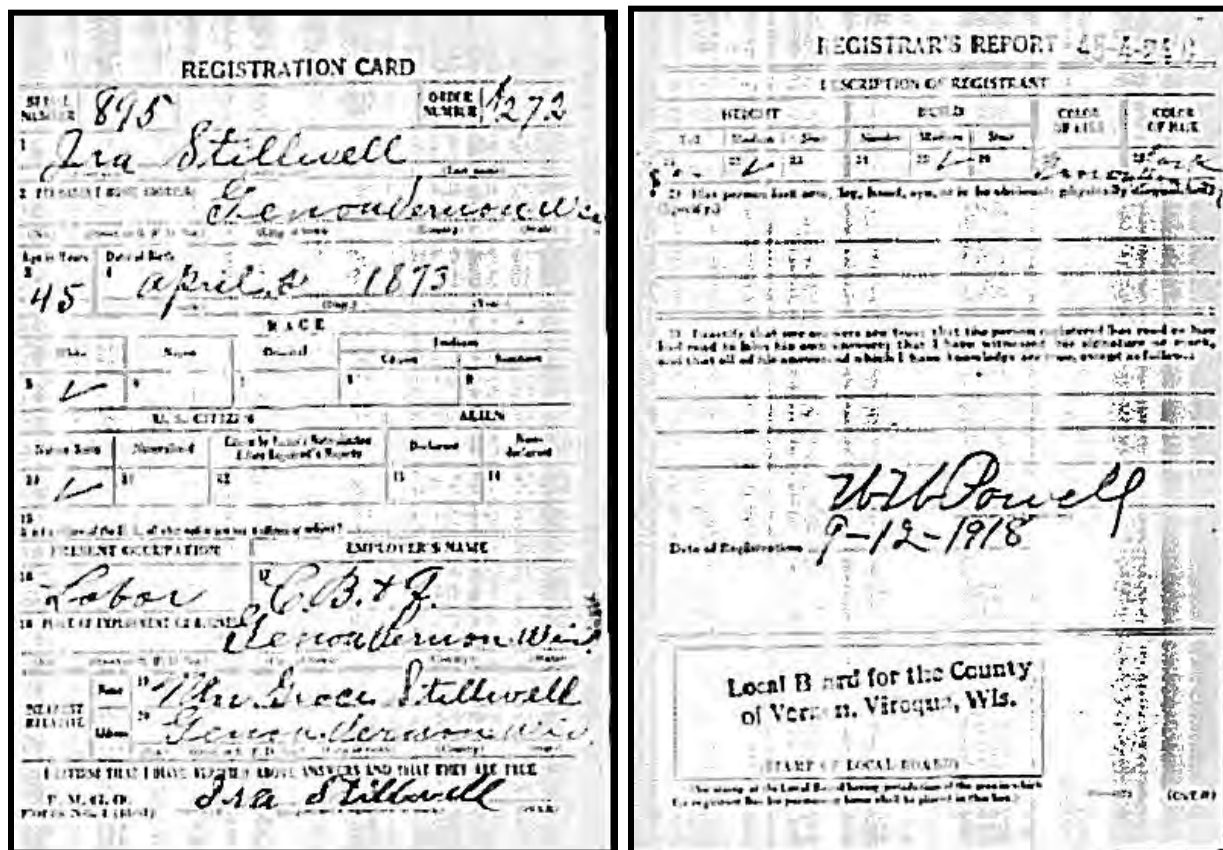 REGISTRATION CARD
SERIAL NUMBER 895 ORDER NUMBER A272
1 Ira Stillwell
(Last name)
2 PERMANENT HOME ADDRESS: Genoa Vernon Wis
Age in Years Date of Birth
3 45 4 April 1873
RACE
White Negro Oriental Indian
Citizen Noncitizen
5 ✓ 6 7 8 9
U. S. CITIZEN ALIEN
Native Born Naturalized Citizen by Father's Naturalization Before Registrant's Majority Declarant Non-declarant
10 ✓ 11 12 13 14
15
PRESENT OCCUPATION EMPLOYER'S NAME
16 Labor 17 C. B. &
18 PLACE OF EMPLOYMENT OR BUSINESS
Genoa Vernon Wis
NEAREST RELATIVE Name 19 Mrs Grace Stillwell
Address 20 Genoa Vernon Wis
I AFFIRM THAT I HAVE VERIFIED ABOVE ANSWERS AND THAT THEY ARE TRUE
P. M. G. O.
Form No. 1 (Red) Ira Stillwell
REGISTRAR'S REPORT
DESCRIPTION OF REGISTRANT
HEIGHT BUILD COLOR OF EYES COLOR OF HAIR
Tall Medium Short Slender Medium Stout
21 22 ✓ 23 24 25 ✓ 26 27 28 Dark
29 Has person lost arm, leg, hand, eye, or is he obviously physically disqualified?
(Specify.)
30 I certify that my answers are true; that the person registered has read or has
had read to him his own answers; that I have witnessed his signature or mark,
and that all of his answers of which I have knowledge are true, except as follows:
W W Powell
Date of Registration 9-12-1918
Local Board for the County
of Vernon, Viroqua, Wis.
(STAMP OF LOCAL BOARD)
(The stamp of the Local Board having jurisdiction of the area in which
the registrant has his permanent home shall be placed in this box.)
(OVER)